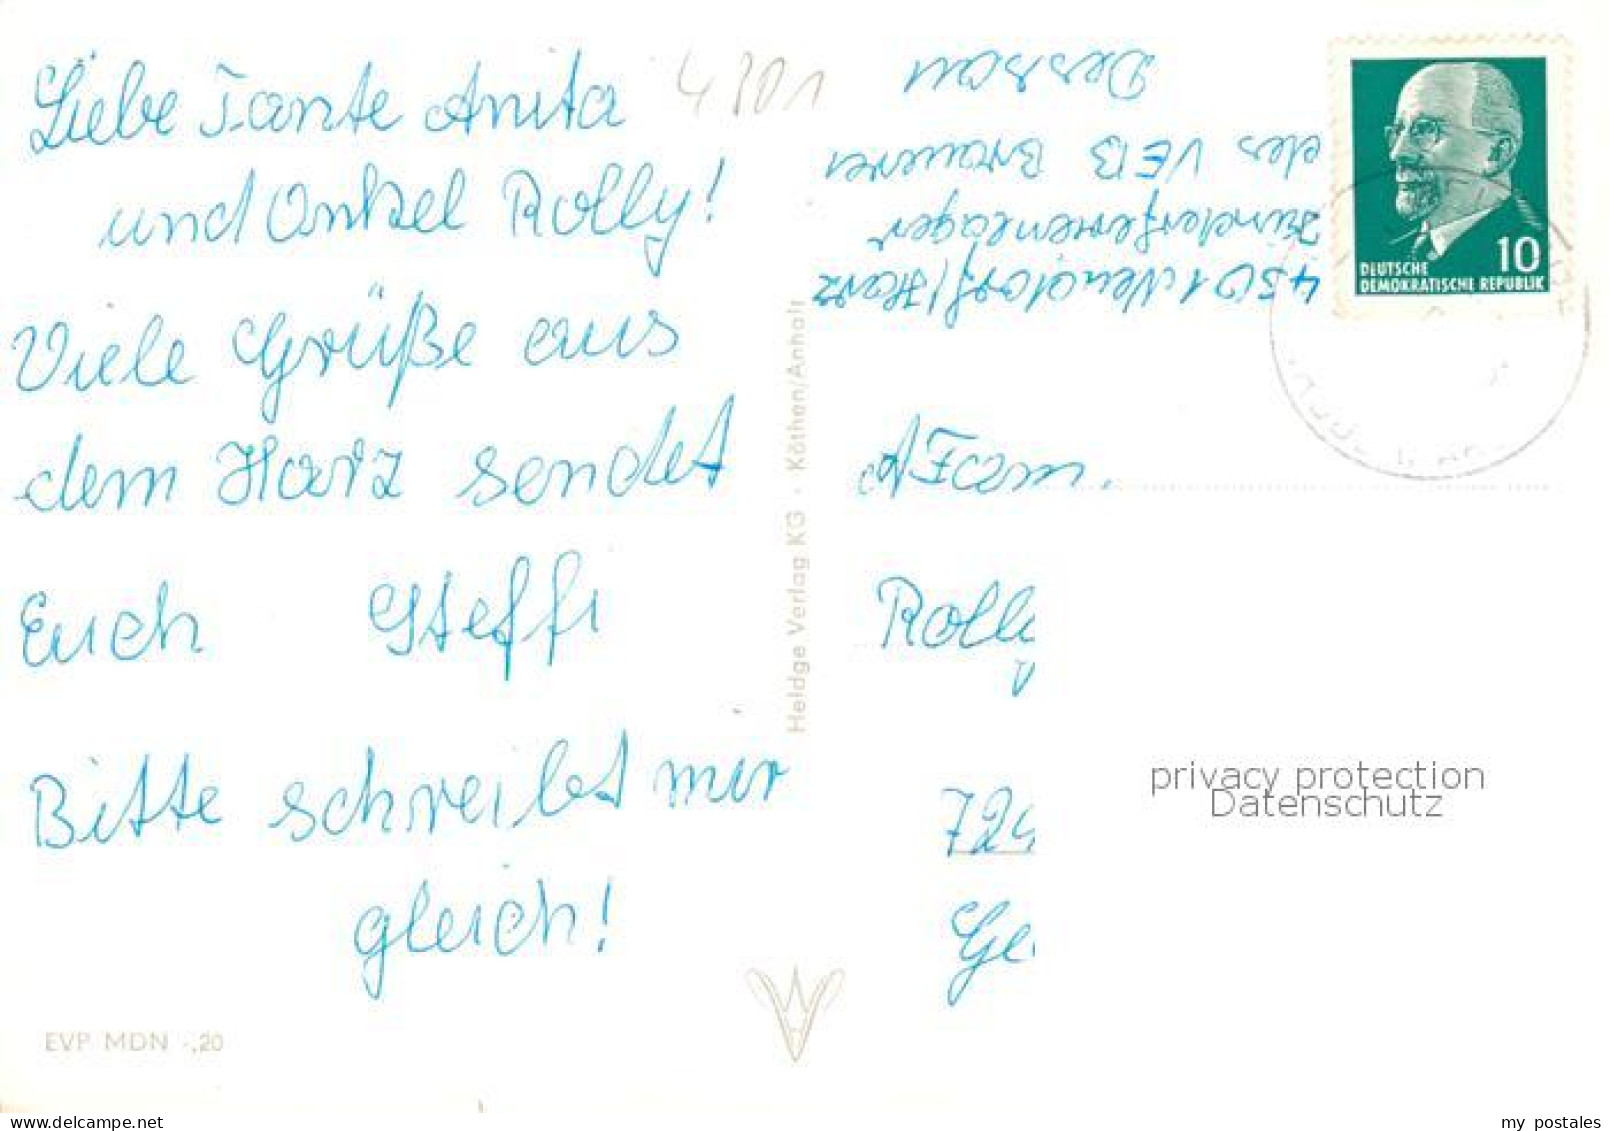 Liebe Tante Anita
und Onkel Rolly!
Viele Grüße aus
dem Harz sendet
Euch Steffi
Bitte schreibet mir
gleich!
EVP MDN -,20
Heldge Verlag KG · Köthen/Anhalt
4301 Neudorf/Harz
Kinderferienlager
des VEB Brauerei
Dessau
DEUTSCHE
DEMOKRATISCHE REPUBLIK
10
An Fam.
Rolly
724
Ge
privacy protection
Datenschutz
my postales